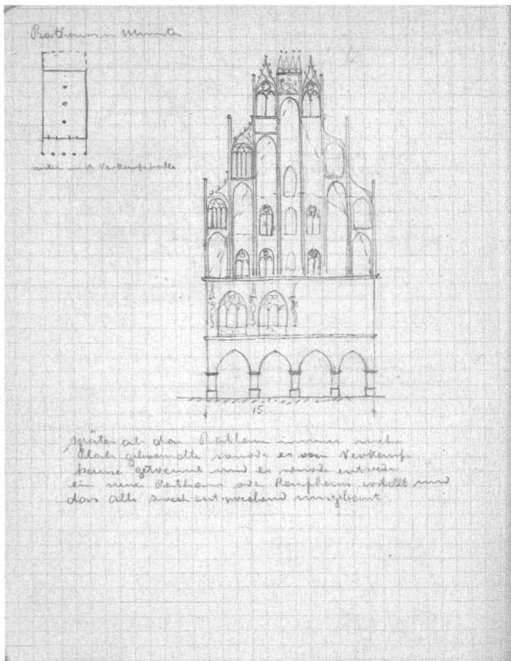 Rathaus in Münster
unten und Verkaufshalle
15
später als das Rathaus immer mehr
Platz gebrauchte wurde es vom Verkaufs
hause getrennt und es wurde entweder
ein neues Rathaus oder Kaufhaus erstellt und
das alte zweckentsprechend umgebaut